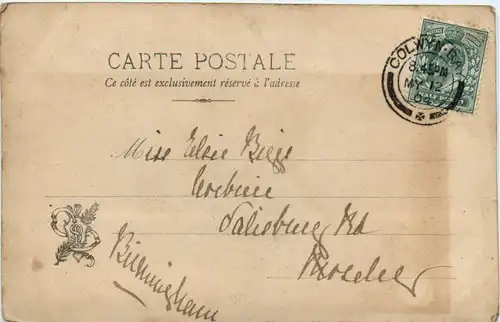 CARTE POSTALE
Ce côté est exclusivement réservé à l'adresse
COLWYN-BAY
MY 12
Miss Elsie Biggs
Salisbury Rd
Moseley
Birmingham